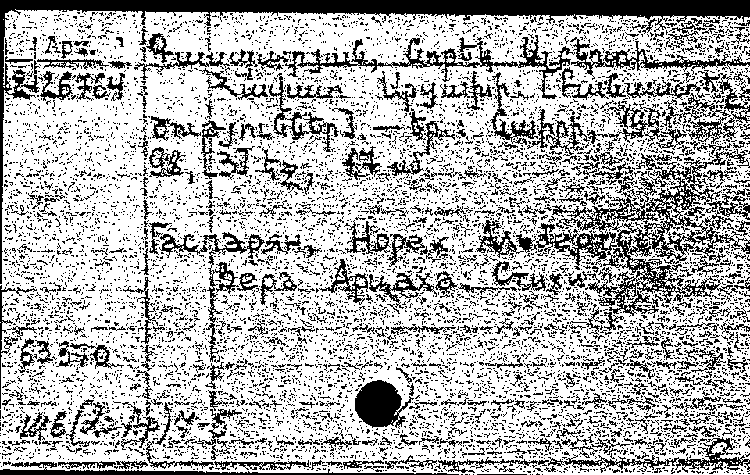 Арм.
2-26764
Գասպարյան, Նորեկ Ալբերտի
Հավատ Արցախի: [Բանաստեղ-
ծություններ]. — Եր.: Նաիրի, 1991. —
98, [3] էջ, 17 սմ
Гаспарян, Норек Альбертович
Вера Арцаха: Стихи
63370